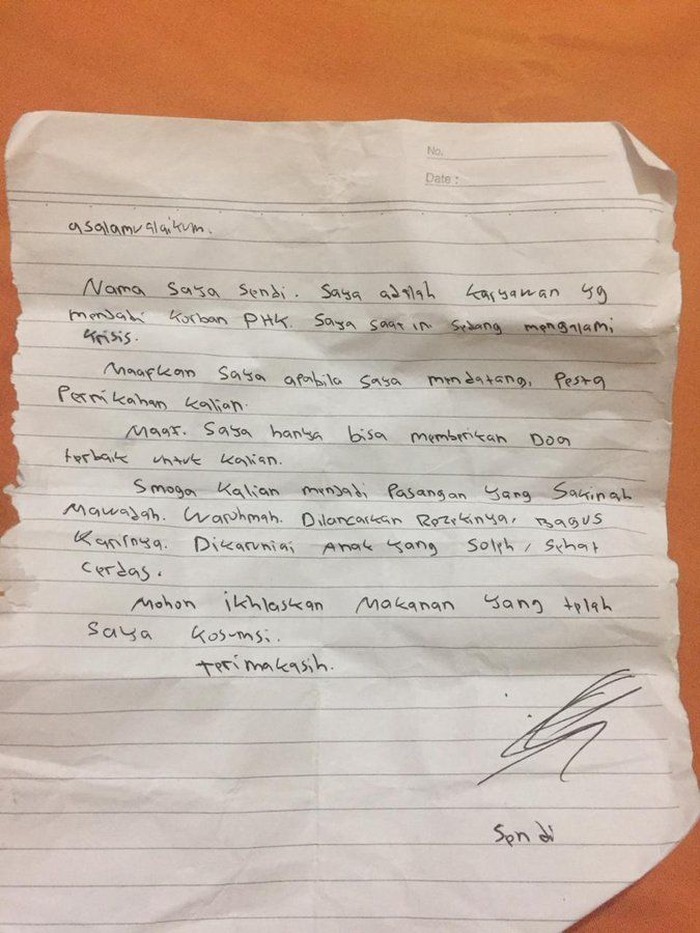 No.
Date :
asalamualaikum.
Nama saya sendi. Saya adalah karyawan yg
menjadi korban PHK. Saya saat ini sedang mengalami
krisis.
Maafkan saya apabila saya mendatangi Pesta
Pernikahan kalian.
Maaf. Saya hanya bisa memberikan Doa
terbaik untuk kalian.
Smoga kalian menjadi Pasangan yang Sakinah
Mawadah. Warohmah. Dilancarkan Rezekinya, Bagus
Karirnya. Dikaruniai Anak yang Soleh, Sehat
Cerdas.
Mohon ikhlaskan Makanan yang telah
saya kosumsi.
terimakasih.
Sendi